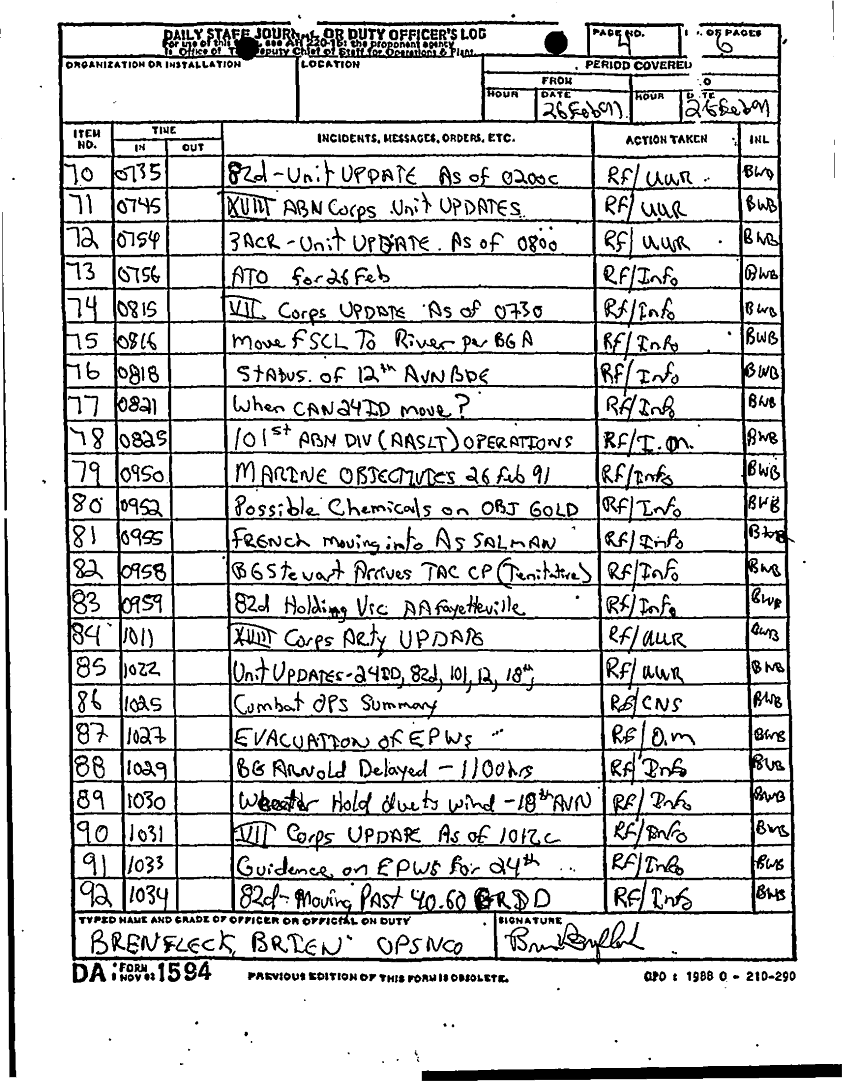 DAILY STAFF JOURNAL OR DUTY OFFICER'S LOG
For use of this see AR 220-15; the proponent agency
is Office of The Deputy Chief of Staff for Operations & Plans.
PAGE NO.
4
OF PAGES
6
ORGANIZATION OR INSTALLATION
LOCATION
PERIOD COVERED
FROM
HOUR DATE HOUR DATE
26 Feb 91 26 Feb 91
ITEM NO. TIME INCIDENTS, MESSAGES, ORDERS, ETC. ACTION TAKEN INL
IN OUT
70 0735 82d - Unit UPDATE As of 0200c RF/UUR BWB
71 0745 XVIII ABN Corps Unit UPDATES RF/UUR BWB
72 0754 3ACR - Unit UPDATE. As of 0800 RF/UUR BWB
73 0756 ATO for 26 Feb RF/Info BWB
74 0815 VII Corps UPDATE As of 0730 RF/Info BWB
75 0816 Move FSCL To River per BGA RF/Info BWB
76 0818 STATUS of 12th AVN BDE RF/Info BWB
77 0821 When CAN 24ID move? RF/Info BWB
78 0825 101st ABN DIV (AASLT) OPERATIONS RF/I.M. BWB
79 0950 MARINE OBJECTIVES 26 Feb 91 RF/Info BWB
80 0952 Possible Chemicals on OBJ GOLD RF/Info BWB
81 0955 FRENCH moving into As SALMAN RF/Info BWB
82 0958 BG Stewart Arrives TAC CP (Tenitative) RF/Info BWB
83 0959 82d Holding Vic AA Fayetteville RF/Info BWB
84 1011 XVIII Corps ARty UPDATE RF/UUR BWB
85 1022 Unit UPDATES-24ID, 82d, 101, 12, 18th, RF/UUR BWB
86 1025 Combat OPS Summary RF/CNS BWB
87 1027 EVACUATION OF EPWs RF/O.M BWB
88 1029 BG ARNOLD Delayed - 1100hrs RF/Info BWB
89 1030 Hold due to wind - 18th AVN RF/Info BWB
90 1031 VII Corps UPDATE As of 1012c RF/Info BWB
91 1033 Guidence on EPWS for 24th RF/Info BWB
92 1034 82d - Moving PAST 40.60 GRID RF/Info BWB
TYPED NAME AND GRADE OF OFFICER OR OFFICIAL ON DUTY SIGNATURE
BRENFLECK, BRIEN OPSNCO
DA FORM 1594 PREVIOUS EDITION OF THIS FORM IS OBSOLETE. GPO : 1988 O - 210-290
1 NOV 62